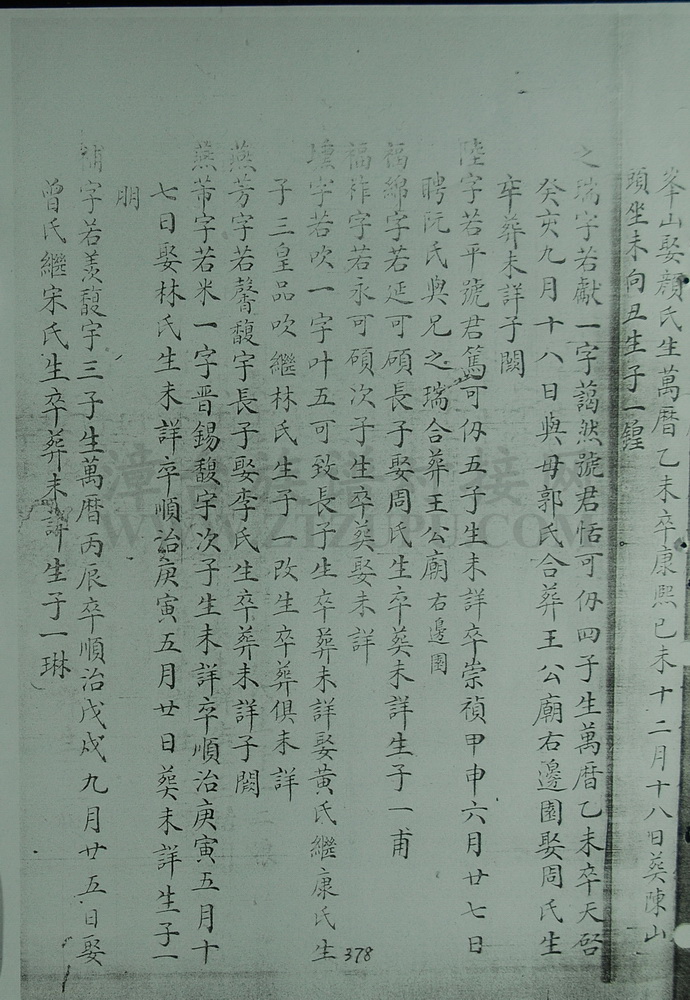 峯山娶顔氏生萬曆乙未卒康熙己未十二月十八日葵陳山
頭坐未向丑生子一鍠
之瑞字若獻一字藹然號君恬可仍四子生萬曆乙未卒天啓
癸亥九月十八日與母郭氏合葬王公廟右邊園娶周氏生
卒葬未詳子闕
陞字若平號君篤可仍五子生未詳卒崇禎甲申六月廿七日
聘阮氏與兄之瑞合葬王公廟右邊園
福綿字若延可碩長子娶周氏生卒葵未詳生子一甫
福祚字若永可碩次子生卒葵娶未詳
壎字若吹一字叶五可致長子生卒葬未詳娶黃氏繼康氏生
子三皇品吹繼林氏生子一改生卒葬俱未詳
燕芳字若馨馥宇長子娶李氏生卒葬未詳子闕
燕芾字若米一字晋錫馥宇次子生未詳卒順治庚寅五月十
七日娶林氏生未詳卒順治庚寅五月廿日葵未詳生子一
朋
字若羡馥宇三子生萬曆丙辰卒順治戊戌九月廿五日娶
曾氏繼宋氏生卒葬未詳生子一琳
378
WWW.ZTZUPU.COM